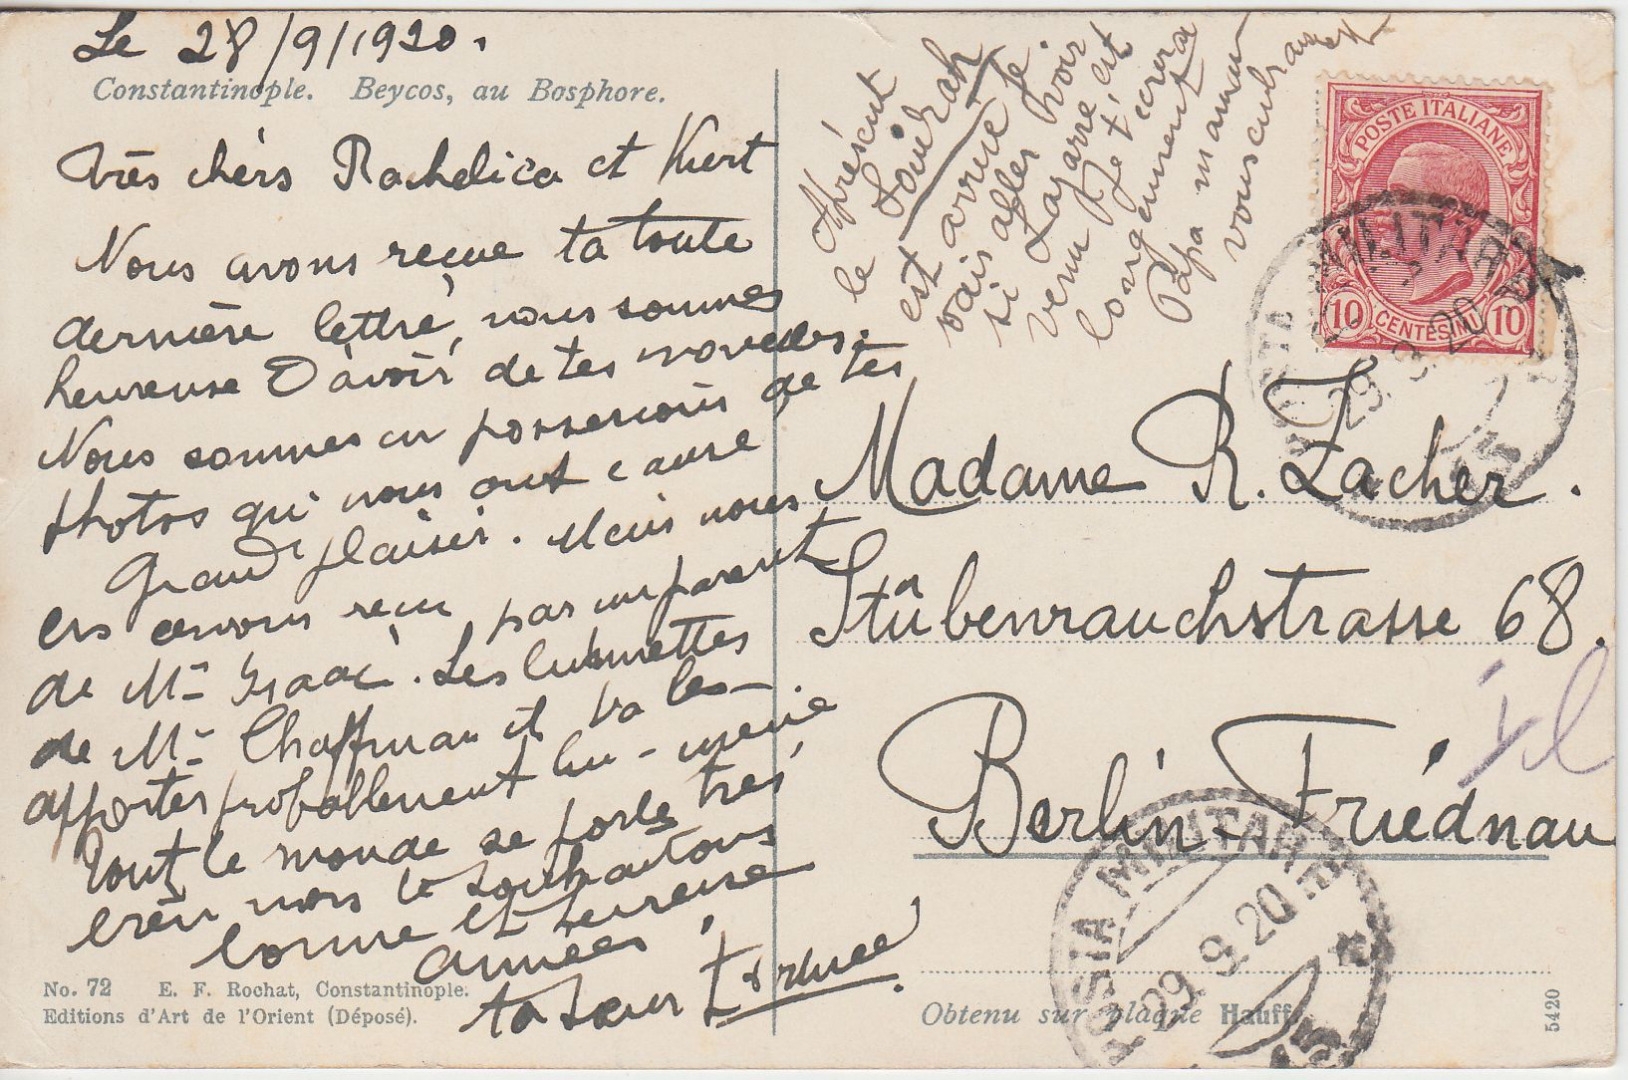 Le 28/9/1920.
Constantinople. Beycos, au Bosphore.
très chèrs Rachelica et Kurt
Nous avons reçue ta toute
dernière lettre, nous sommes
heureuse D'avoir de tes nouvelles.
Nous sommes en possessions de tes
photos qui nous ont cause
Grand plaisir. Mais nous
les avons reçu par un parent
de Mr Isaac. Les lunettes
de Mr Chaffman il va les
apportes proballement lui-meme
Tout le monde se porte très
bien nous te souhaitons
bonne et heureuse
années,
ta sœur
No. 72 E. F. Rochat, Constantinople.
Editions d'Art de l'Orient (Déposé).
Aprésent
le
est arrivé je
vais aller voir
si Lazare est
venu Je t'écrerai
longuement
Papa maman
vous embrassent
POSTE ITALIANE
10 CENTESIMI 10
POSTA MILITARE
29.9.20
Madame R. Lacher.
Stübenrauchstrasse 68.
Berlin-Friédnau
POSTA MILITARE
29.9.20
15
Obtenu sur plaque Hauff.
5420